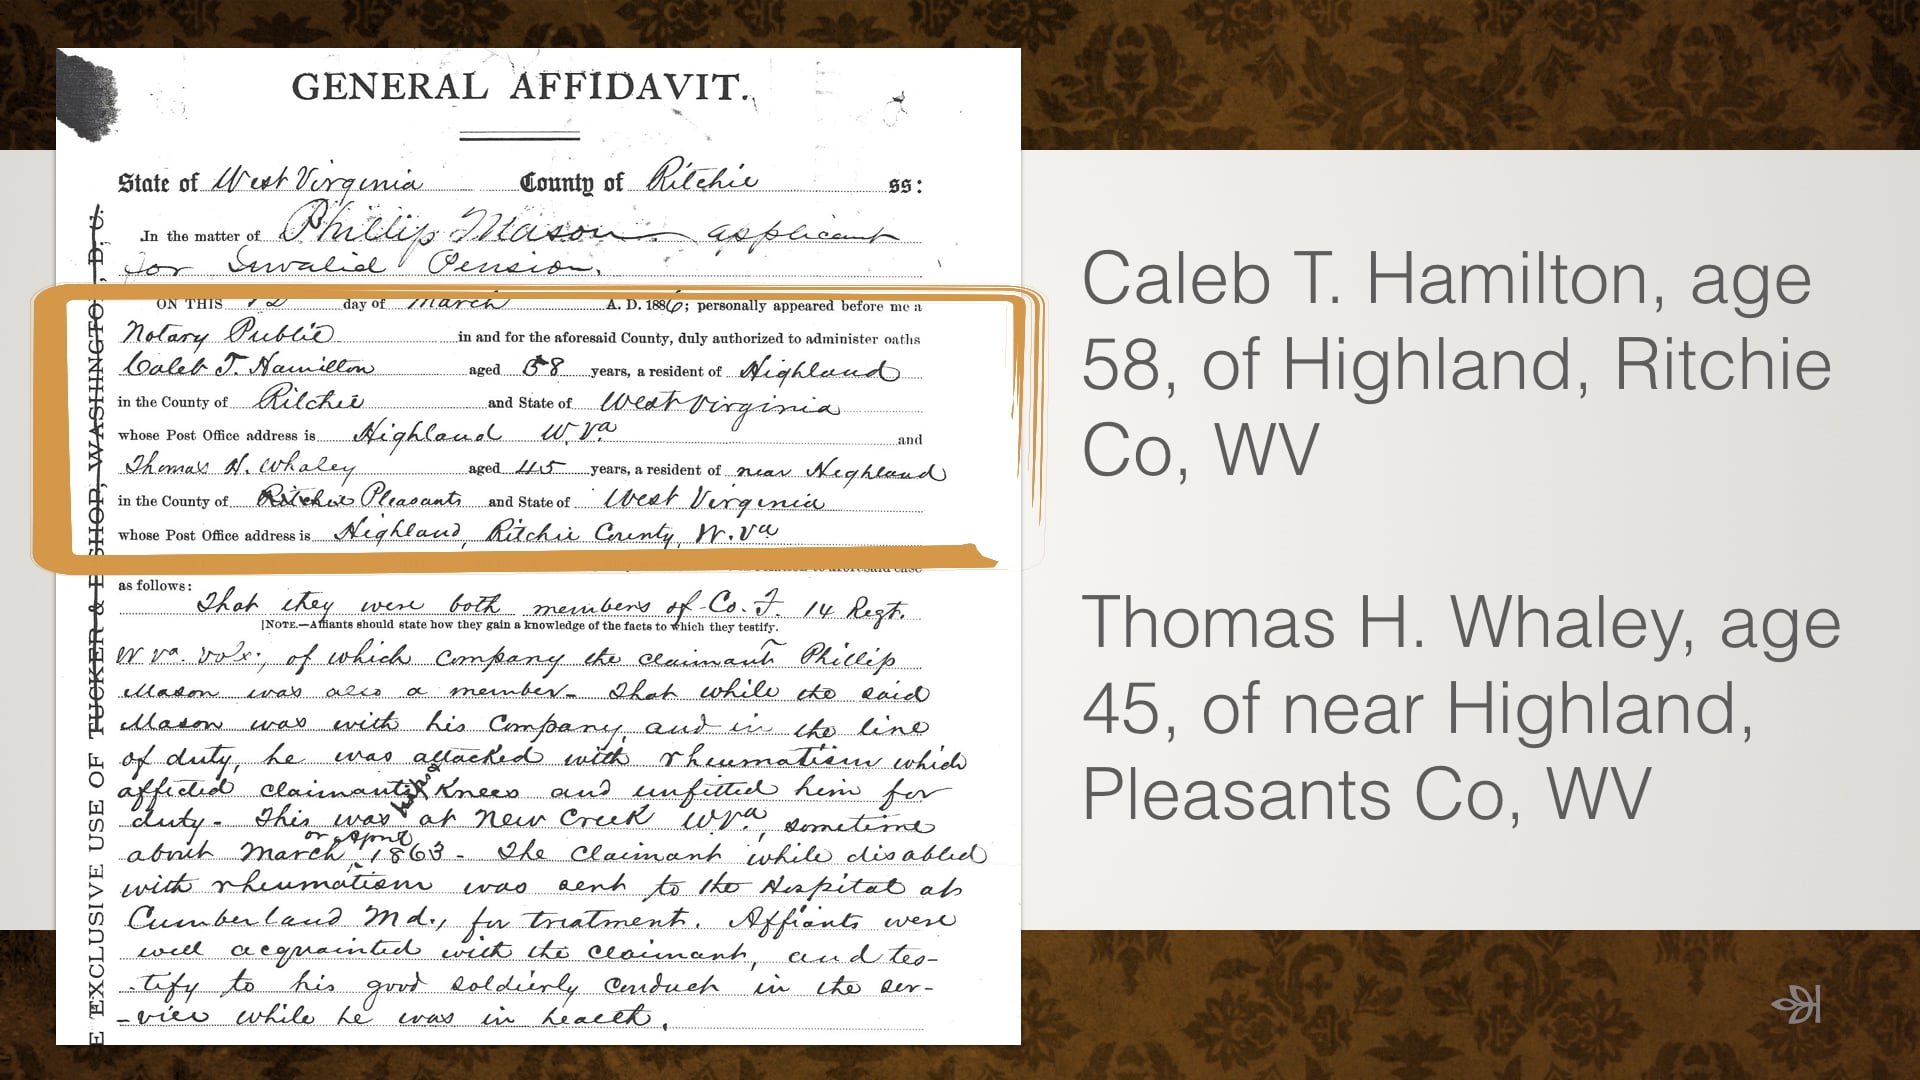 GENERAL AFFIDAVIT.
State of West Virginia County of Ritchie ss:
In the matter of Phillip Mason applicant
for Invalid Pension.
ON THIS 12 day of March A. D. 1886; personally appeared before me a
Notary Public in and for the aforesaid County, duly authorized to administer oaths
Caleb T. Hamilton aged 58 years, a resident of Highland
in the County of Ritchie and State of West Virginia
whose Post Office address is Highland W. Va and
Thomas H. Whaley aged 45 years, a resident of near Highland
in the County of Ritchie Pleasants and State of West Virginia
whose Post Office address is Highland, Ritchie County, W. Va
as follows:
That they were both members of Co. F. 14 Regt.
[NOTE.—Affiants should state how they gain a knowledge of the facts to which they testify.
W Va. Vols., of which company the claimant Phillip
Mason was also a member - That while the said
Mason was with his Company, and in the line
of duty, he was attacked with rheumatism which
affected claimants Knees and unfitted him for
duty - This was at New Creek W Va, sometime
or April
about March, 1863 - The claimant while disabled
with rheumatism was sent to the Hospital at
Cumberland Md., for treatment. Affiants were
well acquainted with the claimant, and tes-
-tify to his good soldierly conduct in the ser-
-vice while he was in health.
E EXCLUSIVE USE OF TUCKER & BISHOP, WASHINGTON, D. C.
Caleb T. Hamilton, age
58, of Highland, Ritchie
Co, WV
Thomas H. Whaley, age
45, of near Highland,
Pleasants Co, WV